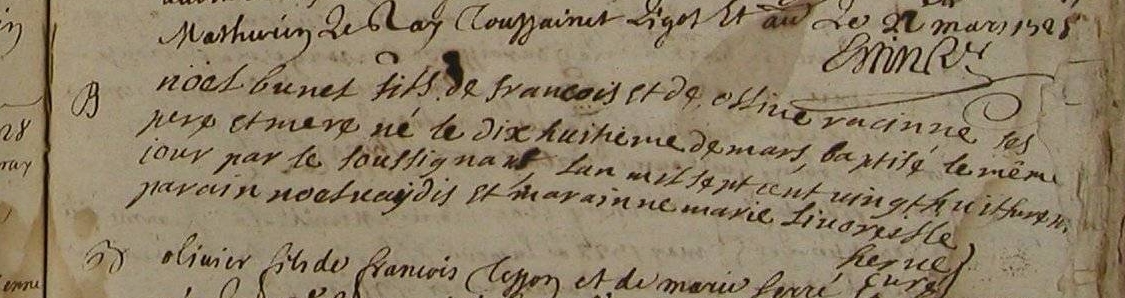 Mathurin Le Ray Toussainct Ligot Et au Le 22 mars 1728
B
noel bunel fils de francois et de ollive racinne ses
pere et mere né le dix huitieme de mars, baptisé le même
iour par le soussignant, lan mil sept cent vingt huit furent
parain noel vaydis et marainne marie Livoreille
herve
curé
B
olivier fils de francois Tesson et de marie serré
28
ray
enne